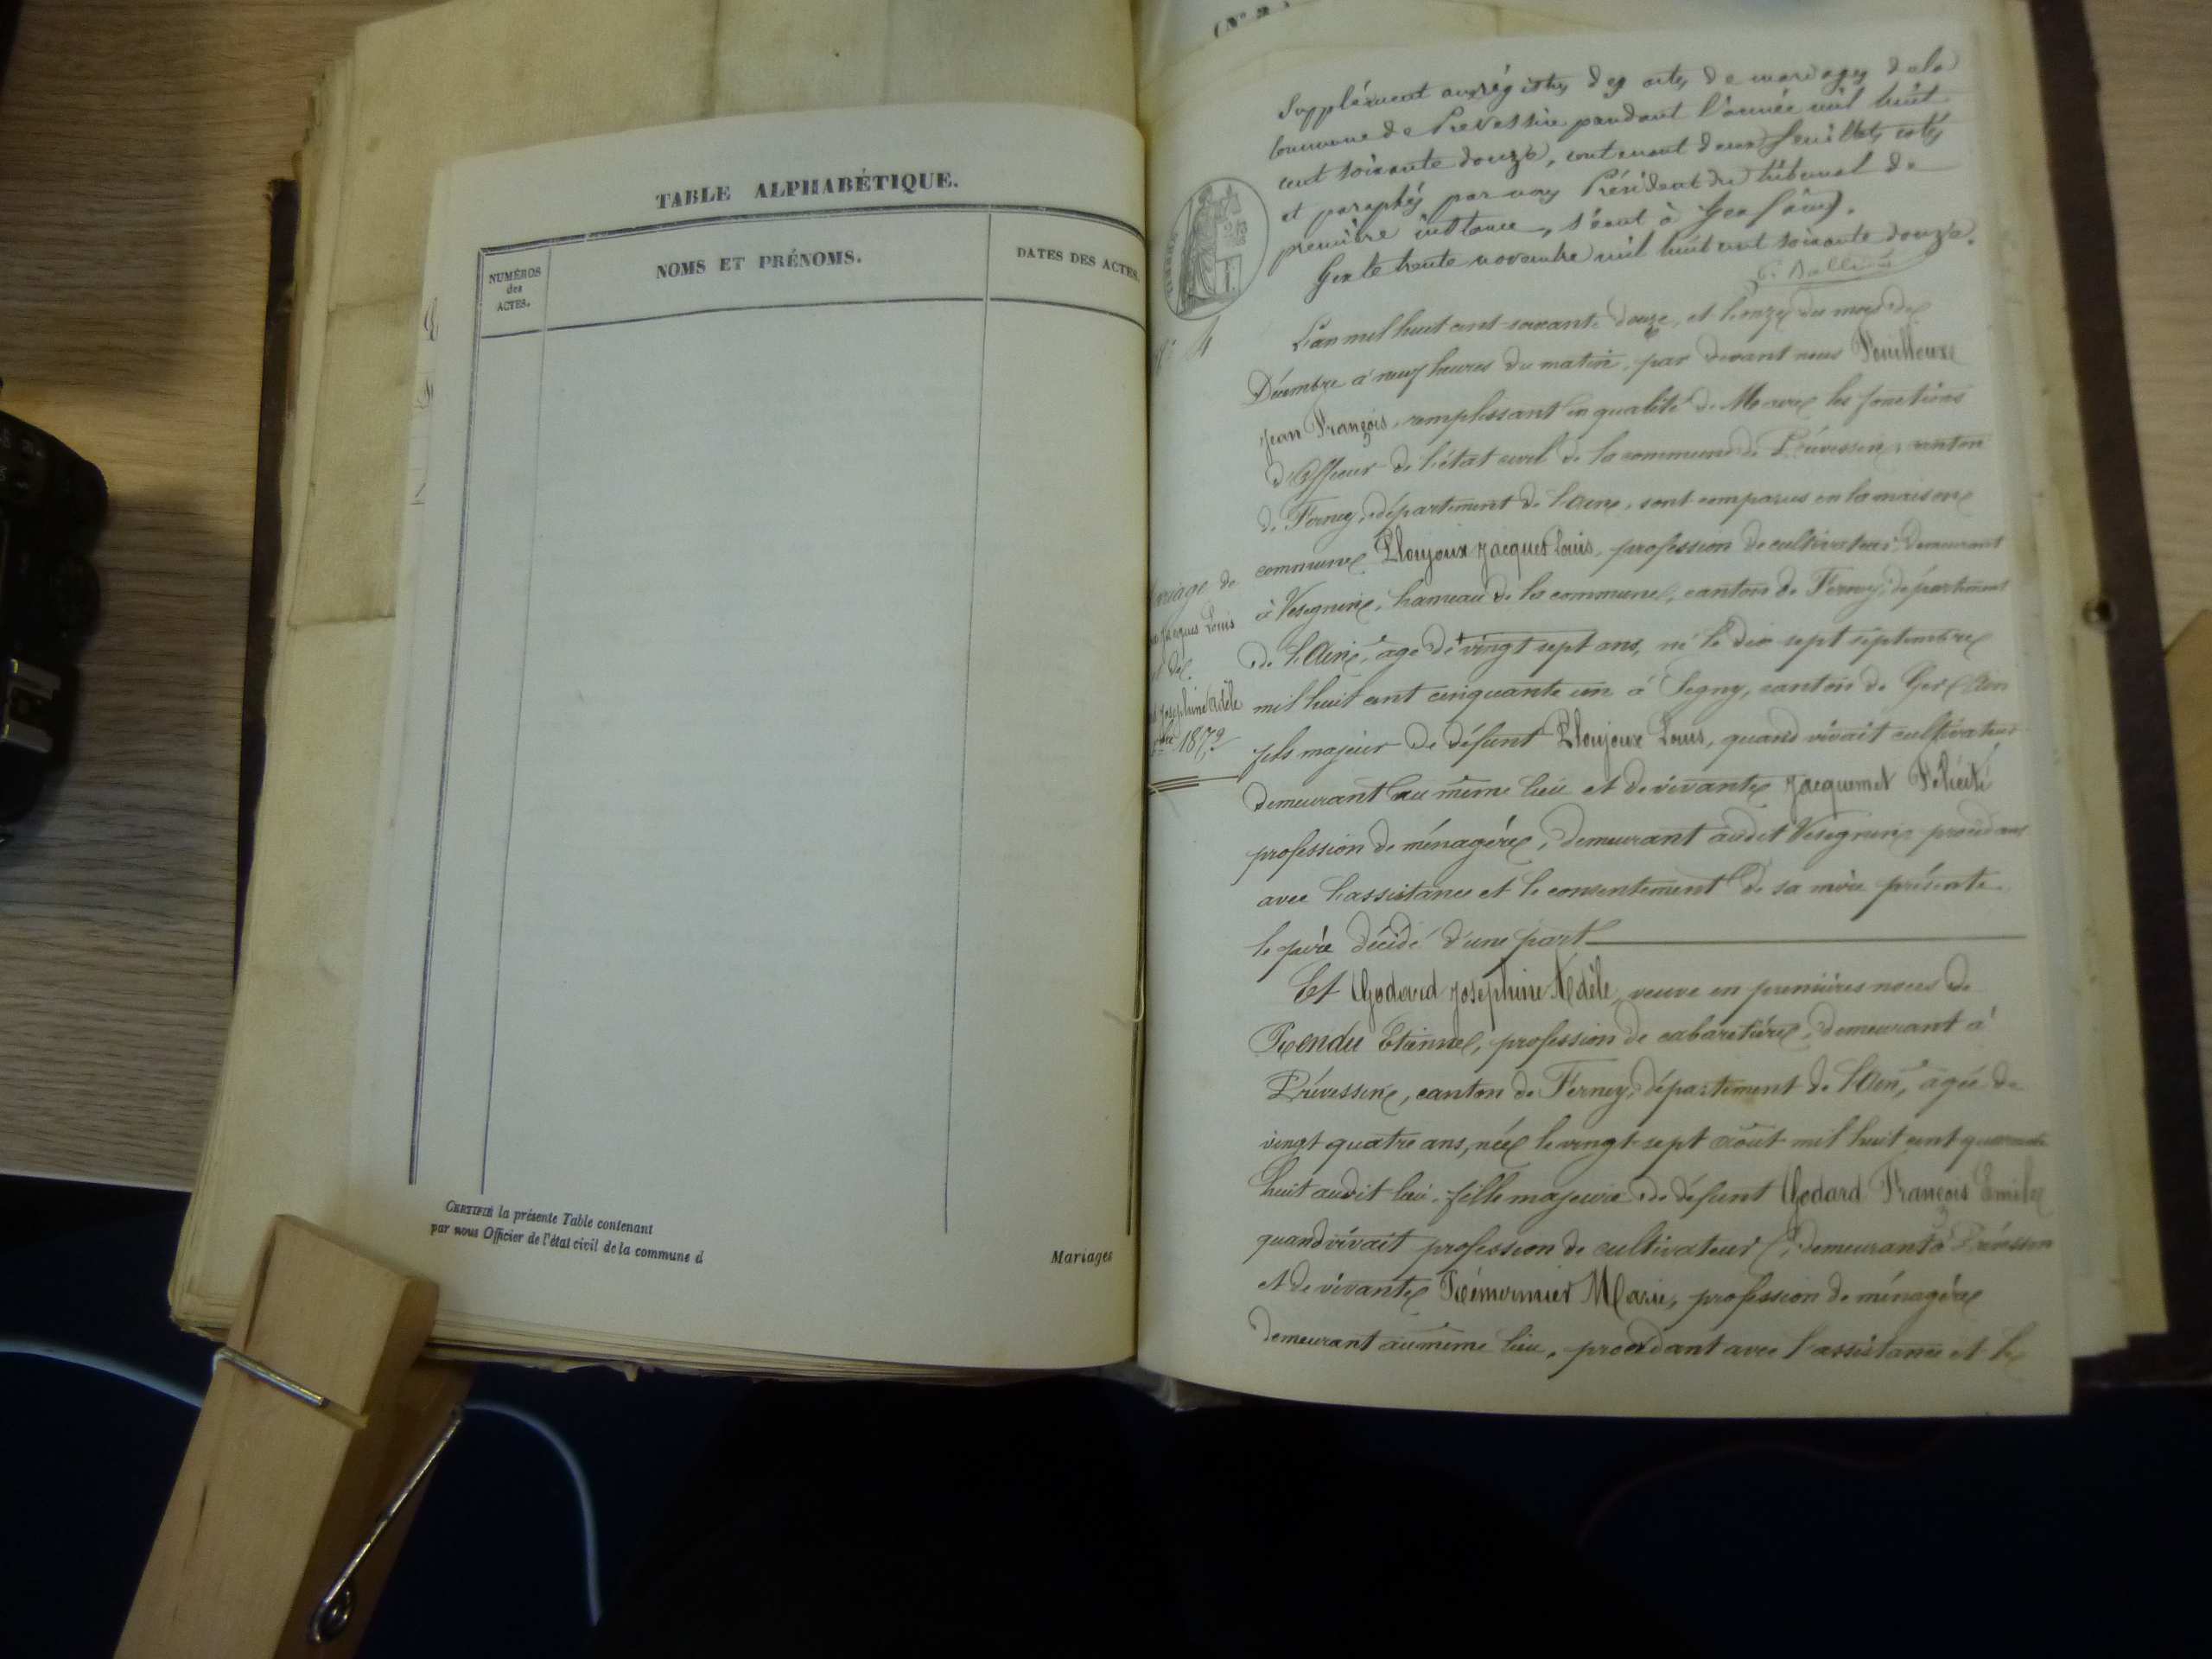 TABLE ALPHABÉTIQUE.
NUMÉROS
des
ACTES.
NOMS ET PRÉNOMS.
DATES DES ACTES.
CERTIFIÉ la présente Table contenant
par nous Officier de l'état civil de la commune d
Mariages
(N° 2
Supplément aux régistres des actes de mariages de la
Commune de Prevessin pendant l'année mil huit
cent soixante douze, contenant deux feuillets cotés
et paraphés par nous Président du tribunal de
première instance, séant à Gex (ain).
Gex le trente novembre mil huit cent soixante douze.
TIMBRE
N° 4
L'an mil huit cent soixante douze, et le onze du mois de
Décembre à neuf heures du matin, par devant nous Fouilloux
Jean François, remplissant en qualité de Maire les fonctions
d'Officier de l'état civil de la commune de Prévessin, canton
de Ferney, département de l'Ain, sont comparus en la maison
commune Ploujoux Jacques Louis, profession de cultivateur, demeurant
à Vésegnin, hameau de la commune, canton de Ferney, département
de l'Ain, âgé de vingt sept ans, né le dix sept septembre
mil huit cent cinquante un à Segny, canton de Gex (Ain
fils majeur de défunt Ploujoux Louis, quand vivait cultivateur
demeurant au même lieu et de vivante Jacquemet Félicité
profession de ménagère, demeurant audit Vesegnin procédant
avec l'assistance et le consentement de sa mère présente
le père décédé d'une part
Et Godard Josephine Adèle, veuve en premières noces de
Rendu Etienne, profession de cabaretière, demeurant à
Prévessin, canton de Ferney, département de l'Ain, âgée de
vingt quatre ans, née le vingt-sept août mil huit cent quarante
huit audit lieu, fille majeure de défunt Godard François Emile
quand vivait profession de cultivateur, demeurant à Prévessin
et de vivante Rémermier Marie, profession de ménagère
demeurant au même lieu, procédant avec l'assistance et le
Mariage de
Jacques Louis
et de
Josephine Adèle
1872